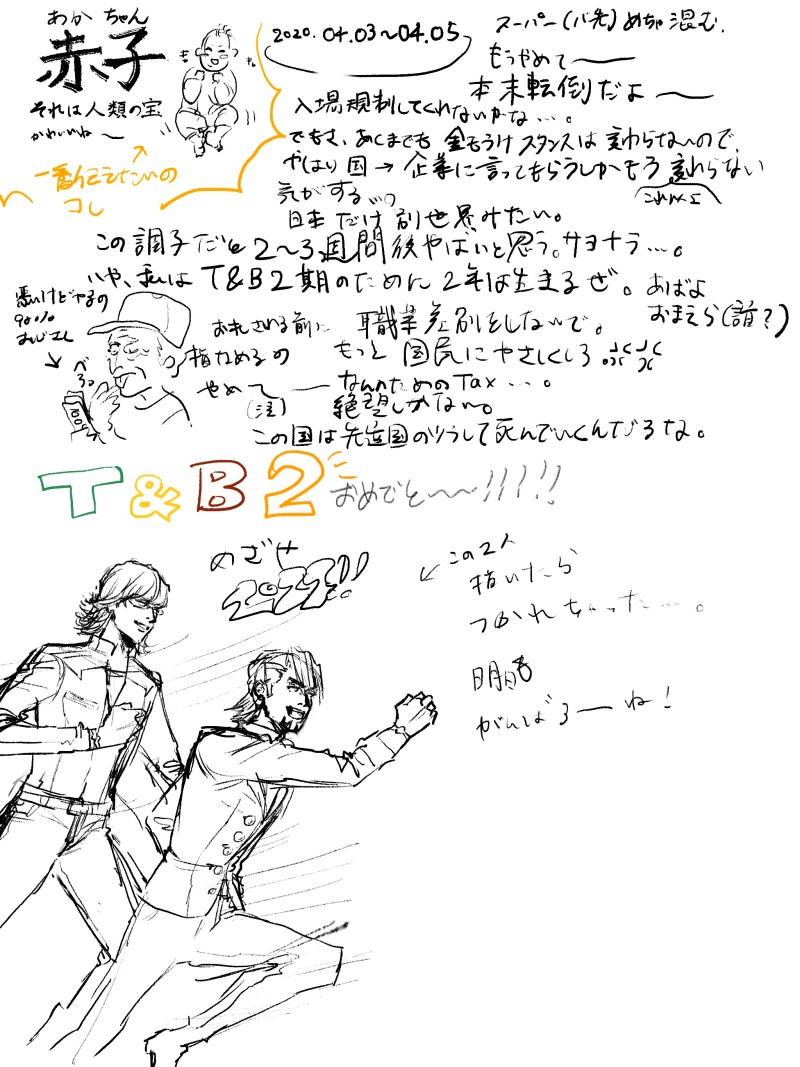 あかちゃん
赤子
それは人類の宝
かわいいね〜
一番伝えたいの
コレ
2020.04.03〜04.05
スーパー(バ先)めちゃ混む.
もうやめて〜
本末転倒だよ〜
入場規制してくれないかな…。
でもさ、あくまでも金もうけスタンスは変わらないので、
やはり国→企業に言ってもらうしかもう変わらない
気がする…。
これぃょ
日本だけ別世界みたい。
この調子だと2〜3週間後やばいと思う。サヨナラ…。
いや、私はT&B2期のために2年は生きるぜ。あばよ
おまえら(誰?)
悪いけどやるの
90%
おじさん
べろっ
100円
お札される前に
指なめるの
やめて〜
(泣)
職業差別をしないで。
もっと国民にやさしくしろ
なんのためのTax…。
絶望しかない。
この国は先進国のフリして死んでいくんだろな。
T&B2
おめでと〜〜!!!!!
めざせ
2022!!
この2人
描いたら
つかれちゃった…。
明日も
がんばろーね!